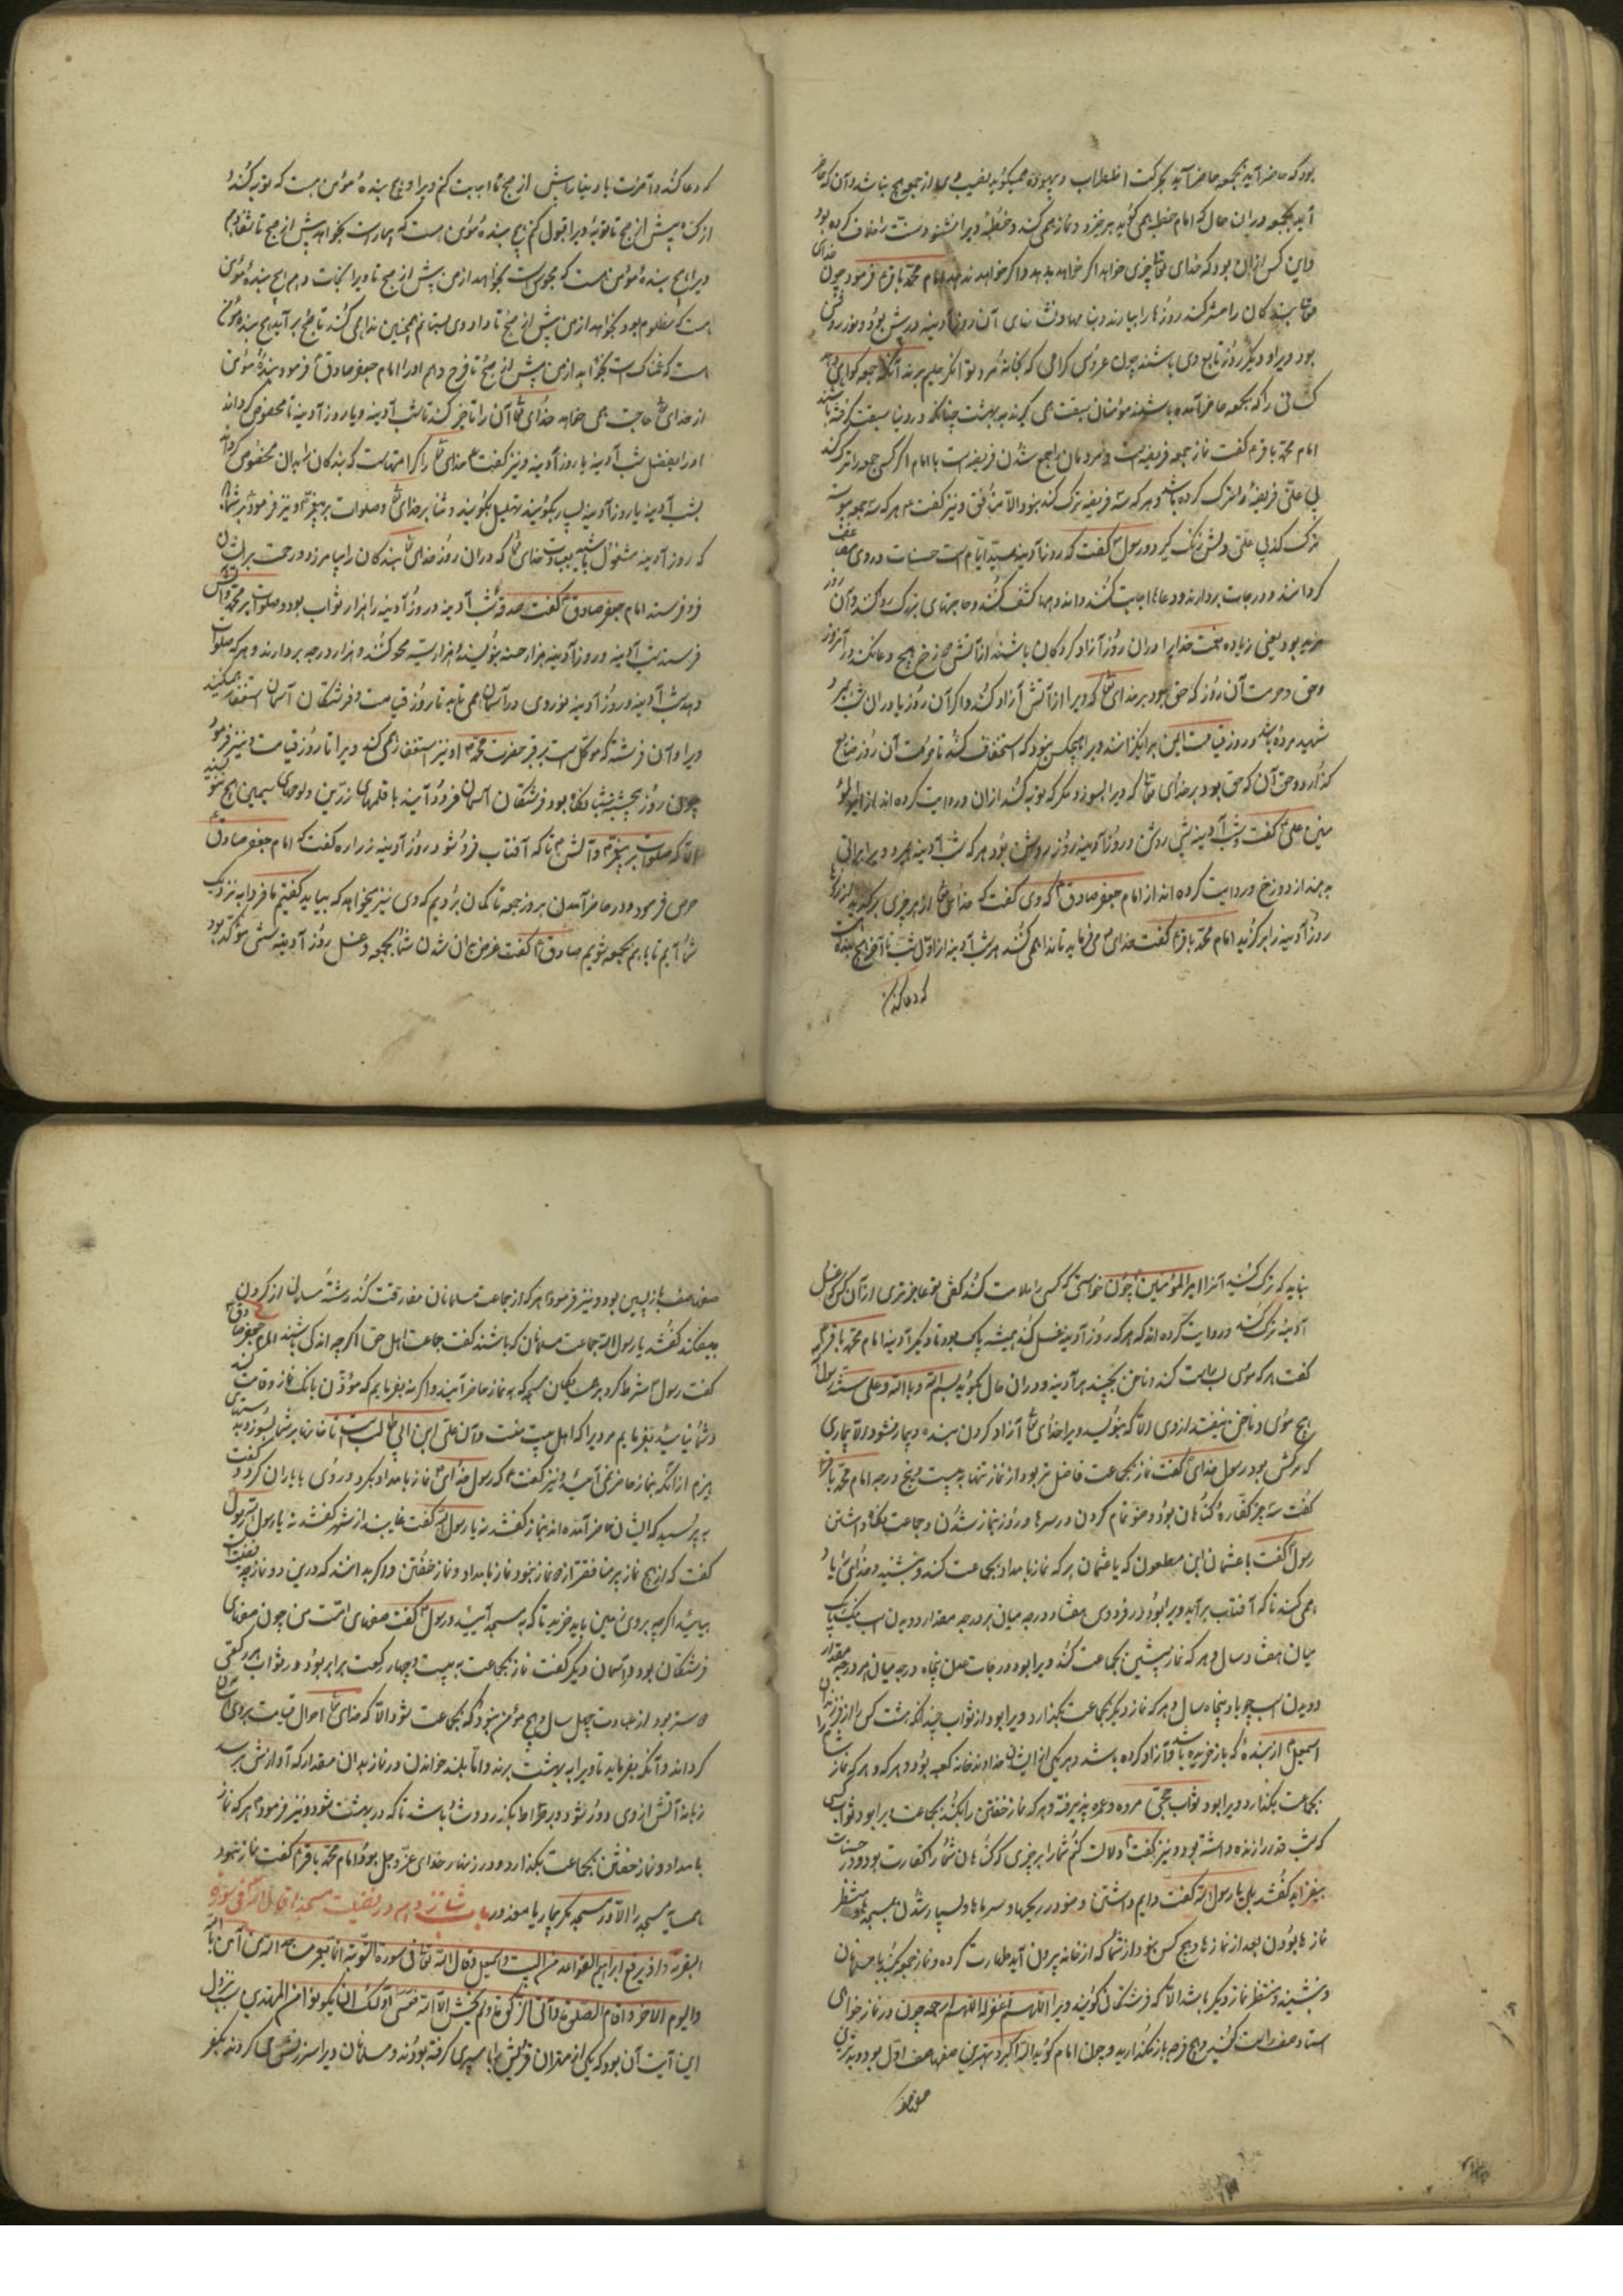 بود که حاضر آید بجمعه حاضر آید بحرکت اضطراب و بیهوده همیگوید نصیب وی از جمعه هیچ نباشد و آن که حاضر
آید بجمعه در آن حال که امام خطبه همی گوید برخیزد و نماز همی کند و خطبه ویرا نشنود سنت را خلاف کرده بود
و این کس از آن بود که خدای تعالی چیزی خواهد اگر خواهد بدهد و اگر خواهد ندهد امام محمد باقر ع فرمود چون خدای
تعالی بندگان را حشر کند روزها را بیارند آن روز آدینه در پیش بود و نور روشن
بود ویرا و دیگر روزها تابع وی باشند چون عروس گرامی که بخانه مرد توانگر حلیم برند آنگه جمعه گواهی دهد
کسانی را که بجمعه حاضر آمده باشند مؤمنان سبقت همی گیرند به بهشت چنانکه در دنیا سبقت گرفته باشند
امام محمد باقر ع گفت نماز جمعه فریضه است و مردمان را جمع شدن فریضه است با امام اگر کسی جمعه را ترک کند
بی علتی فریضه را ترک کرده باشد و هر که سه فریضه ترک کند نبود الا منافق و نیز گفت ع هر که سه جمعه پیوسته
ترک کند بی علتی دلش زنگ گیرد و رسول ص گفت که روز آدینه سید ایام است حسنات در وی مضاعف
گردانند و درجات بردارند و دعاها اجابت کنند و اندوهها کشف کنند و حاجتهای بزرگ روا کنند و آن روز
مزید بود یعنی زیاده نعمت خدایرا در آن روز آزاد کردگان باشند از آتش دوزخ هیچ دعا نکند در آن روز
و حق و حرمت آن روز که حق بود بر خدای تعالی که ویرا از آتش آزاد کند و اگر آن روز یا در آن شب بمیرد
شهید مرده باشد و روز قیامت ایمن برانگیزانند ویرا و هیچکس نبود که استخفاف کند تا حرمت آن روز ضایع
گذارد و حق آن که حق بود بر خدای تعالی که ویرا بسوزد مگر که توبه کند از آن و روایت کرده‌اند از امیرالمؤ
منین علی ع گفت شب آدینه شبی روشن و روز آدینه روزی روشن بود هر که شب آدینه بمیرد ویرا براتی
بدهند از دوزخ و روایت کرده‌اند از امام جعفر صادق ع که وی گفت که خدای تعالی از هر چیزی برگزید از روزها
روز آدینه را برگزید امام محمد باقر ع گفت خدای عز می فرماید تا ندا همی کنند هر شب آدینه از اول شب تا آخر هیچ بنده
که دعا کند
که دعا کند و آخرت یا دنیا را پیش از صبح تا اجابت کنم ویرا و هیچ بنده مؤمن هست که توبه کند
از گناه پیش از صبح تا توبه ویرا قبول کنم هیچ بنده مؤمن هست که بیمارست بخواهد پیش از صبح تا شفا دهم
ویرا هیچ بنده مؤمن هست که محبوس است بخواهد از من پیش از صبح تا ویرا نجات دهم هیچ بنده مؤمن
هست که مظلوم بود بخواهد از من پیش از صبح تا داد وی بستانم همچنین ندا همی کند تا صبح بر آید هیچ بنده مؤمن
هست که غمناک است بخواهد از من پیش از صبح تا فرج دهم او را امام جعفر صادق ع فرمود بنده مؤمن
از خدای تعالی حاجت همی خواهد خدای تعالی آن را تأخیر کند تا شب آدینه و یا روز آدینه تا مخصوص گرداند
او را بفضل شب آدینه یا روز آدینه و نیز گفت ع خدای تعالی را کرامتهاست که بندگان را بدان مخصوص گرداند
بشب آدینه یا روز آدینه بسیار بگوئید تهلیل بگوئید و ثنا بر خدای تعالی و صلوات بر پیغمبر ص و نیز فرمود بر شما باد
که روز آدینه مشغول باشید بعبادت خدای تعالی که در آن روز خدای تعالی بندگان را بیامرزد و رحمت بر ایشان
فرو فرستد امام جعفر صادق ع گفت صدقه شب آدینه و روز آدینه را هزار ثواب بود و صلوات بر محمد و آلش
فرستد شب آدینه و روز آدینه هزار حسنه بنویسند و هزار سیئه محو کنند و هزار درجه بردارند و هر که صلوات
دهد شب آدینه و روز آدینه نور وی در آسمان همی تابد تا روز قیامت و فرشتگان آسمان استغفار همیکنند
ویرا و آن فرشته که موکل است بر قبر حضرت محمد ص او نیز استغفار همی کند ویرا تا روز قیامت و نیز فرمود
چون روز پنجشنبه شبانگاه بود فرشتگان آسمان فرود آیند با قلمهای زرین و لوحهای سیمین هیچ ننویسند
الا که صلوات بر پیغمبر و آلش تا که آفتاب فرو شود روز آدینه زراره گفت که امام جعفر صادق ع
حرص فرمود در حاضر آمدن بروز جمعه تا گمان بردیم که وی نیز میخواهد که بیاید گفتیم ما فردا به نزدیک
شما آییم تا با هم بجمعه شویم صادق ع گفت غرض آن شدن شما بجمعه و غسل روز آدینه سنتی مؤکد بود
نباید که ترک کنید آنرا امیرالمؤمنین ع چون خواستی که کسی را ملامت کند گفتی تو عاجزتری از آن کس که غسل
آدینه ترک کند و روایت کرده‌اند که هر که روز آدینه غسل کند همیشه پاک بود تا دیگر آدینه امام محمد باقر ع
گفت هر که موی لب راست کند و ناخن بچیند هر آدینه و در آن حال بگوید بسم الله و بالله و علی سنة رسول الله
هیچ موی و ناخن نیفتد از وی الا که بنویسد ویرا خدای تعالی آزاد کردن بنده و بیمار نشود الا بیماری
که مرگش بود رسول خدای گفت نماز بجماعت فاضل تر بود از نماز تنها به بیست و پنج درجه امام محمد باقر ع
گفت سه چیز کفاره گناهان بود وضو تمام کردن در سرما و روز بنماز شدن و جماعت نگاه داشتن
رسول ص گفت با عثمان ابن مظعون که یا عثمان هر که نماز بامداد بجماعت کند و بنشیند و خدای را یاد
همی کند تا که آفتاب برآید ویرا بود در فردوس هفتاد درجه میان هر درجه مقدار دویدن اسب نیک تک
میان هفتاد سال و هر که نماز پیشین بجماعت کند ویرا بود در جنات عدن پنجاه درجه میان هر درجه مقدار
دویدن اسب جواد پنجاه سال و هر که نماز دیگر بجماعت بگذارد ویرا بود از ثواب چندانکه هشت کس را از فرزندان
اسمعیل ع از بنده‌ای که باز خریده باشد و آزاد کرده باشد و هر یکی از ایشان خداوند خانه کعبه بود و هر که نماز شام
بجماعت بگذارد ویرا بود ثواب حجی مبرور و عمره پذیرفته و هر که نماز خفتن را بکند بجماعت ویرا بود ثواب کسی
که شب قدر را زنده داشته بود و نیز گفت ص دلالت کنم شما را بر چیزی که گناهان شما را کفارت بود و در حسنات
بیفزاید گفتند بلی یا رسول الله گفت دایم داشتن وضو در رنجها و سرماها و بسیار شدن بمسجدها و منتظر
نماز ها بودن بعد از نماز ها و هیچ کس نبود از شما که از خانه بیرون آید طهارت کرده و نماز جمعه کند با مسلمانان
و بنشیند و منتظر نماز دیگر باشد الا که فرشتگان گویند ویرا اللهم اغفر له اللهم ارحمه چون در نماز خواهی
استاد صف راست کنید و هیچ فرجه باز نگذارید و چون امام گوید الله اکبر و بهترین صفها صف اول بود و بدترین
صفها صف
صفها صف بازپسین بود و نیز فرمود ص هر که از جماعت مسلمانان مفارقت کند رشته مسلمانی از گردن
بیفکند گفتند یا رسول الله جماعت مسلمانان که باشند گفت جماعت اهل حق اگر چه اندکی باشند امام جعفر صادق ع
گفت رسول ص شرط کرد بر همسایگان مسجد که به نماز حاضر آیند و اگر نه بفرمایم که مؤذن بانک نماز و قامت کند
و شما نیائید بفرمایم مردیرا که اهل بیت منست و آن علی ابن ابی طالب است تا خانها بر شما بسوزد بسبب
هیزم از آنکه بنماز حاضر نمی آئید و نیز گفت ع که رسول خدای ص نماز بامداد بکرد و روی با یاران کرد و گفت
به پرسید که ایشان حاضر آمده‌اند بنماز گفتند نه یا رسول الله گفت غایبند از شهر گفتند نه یا رسول الله پس رسول
گفت که از هیچ نماز بر منافقتر از نماز نبود نماز بامداد و نماز خفتن و اگر بدانند که درین دو نماز چه فضیلت است
بیایند اگر چه بر وی زمین باید خزید تا که به مسجد آیید و رسول ص گفت صفهای امت من چون صفهای
فرشتگان بود در آسمان و دیگر گفت نماز بجماعت به بیست و چهار رکعت برابر بود و ثواب هر رکعتی
فاضلتر بود از عبادت چهل سال و هیچ مؤمن نبود که بجماعت شود الا که خدای تعالی احوال قیامت بر وی آسان
گرداند و آنگه بفرماید تا ویرا به بهشت برند و اما بلند خواندن در نماز بدان مقدار که آوازش برسد
زبانه آتش از وی دور شود و بر صراط بگذرد و شاد باشد تا که در بهشت شود و نیز فرمود ص هر که نماز
بامداد و نماز خفتن بجماعت بگذارد در زنهار خدای عز و جل بود امام محمد باقر ع گفت نماز نبود
همسایه مسجد را الا در مسجد مگر بیمار یا معذور باب شانزدهم در فضیلت مسجد قال الله تعالی فی سورة
البقرة و اذ یرفع ابراهیم القواعد من البیت و اسمعیل و قال الله تعالی فی سورة التوبة انما یعمر مساجد الله من آمن بالله
والیوم الآخر و اقام الصلوة و آتی الزکوة و لم یخش الا الله فعسی اولئک ان یکونوا من المهتدین سبب نزول
این آیت آن بود که یکی از مهتران قریش را باسیری گرفته بودند و مسلمانان ویرا سرزنش می کردند بکفر